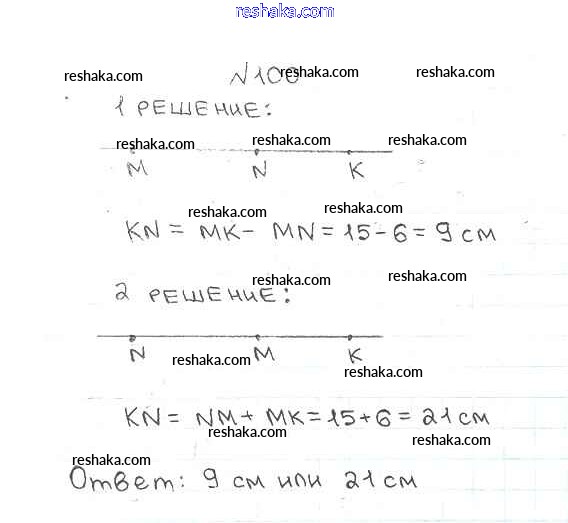 reshaka.com
reshaka.com reshaka.com reshaka.com
№100
1 РЕШЕНИЕ:
reshaka.com reshaka.com reshaka.com
M N K
reshaka.com reshaka.com
KN = MK - MN = 15 - 6 = 9 см
reshaka.com reshaka.com
2 РЕШЕНИЕ:
N M K
reshaka.com reshaka.com
KN = NM + MK = 15 + 6 = 21 см
reshaka.com reshaka.com
reshaka.com
Ответ: 9 см или 21 см